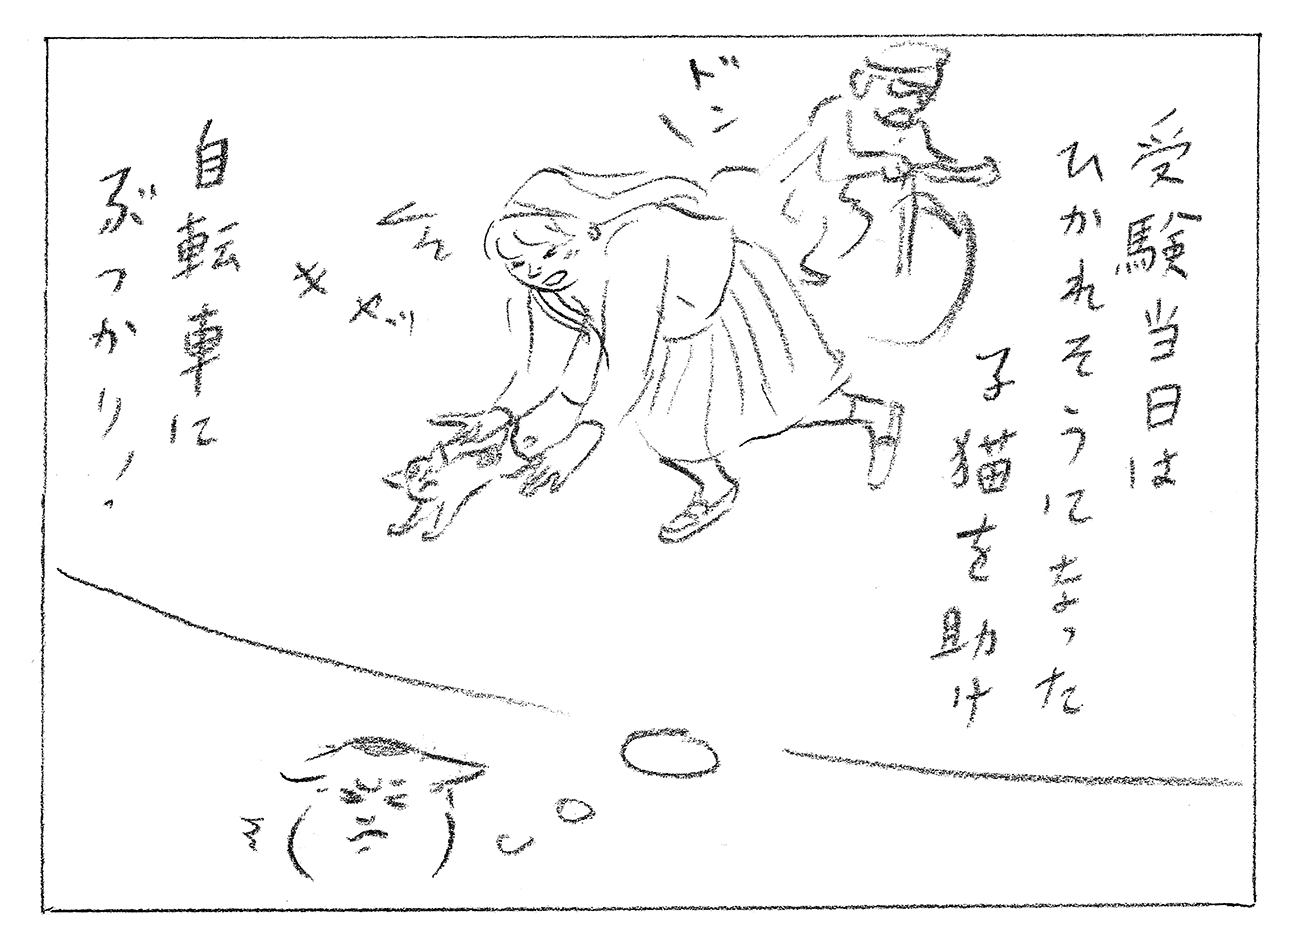 受験当日は
ひかれそうになった
子猫を助け
ドン
自転車に
ぶつかり！